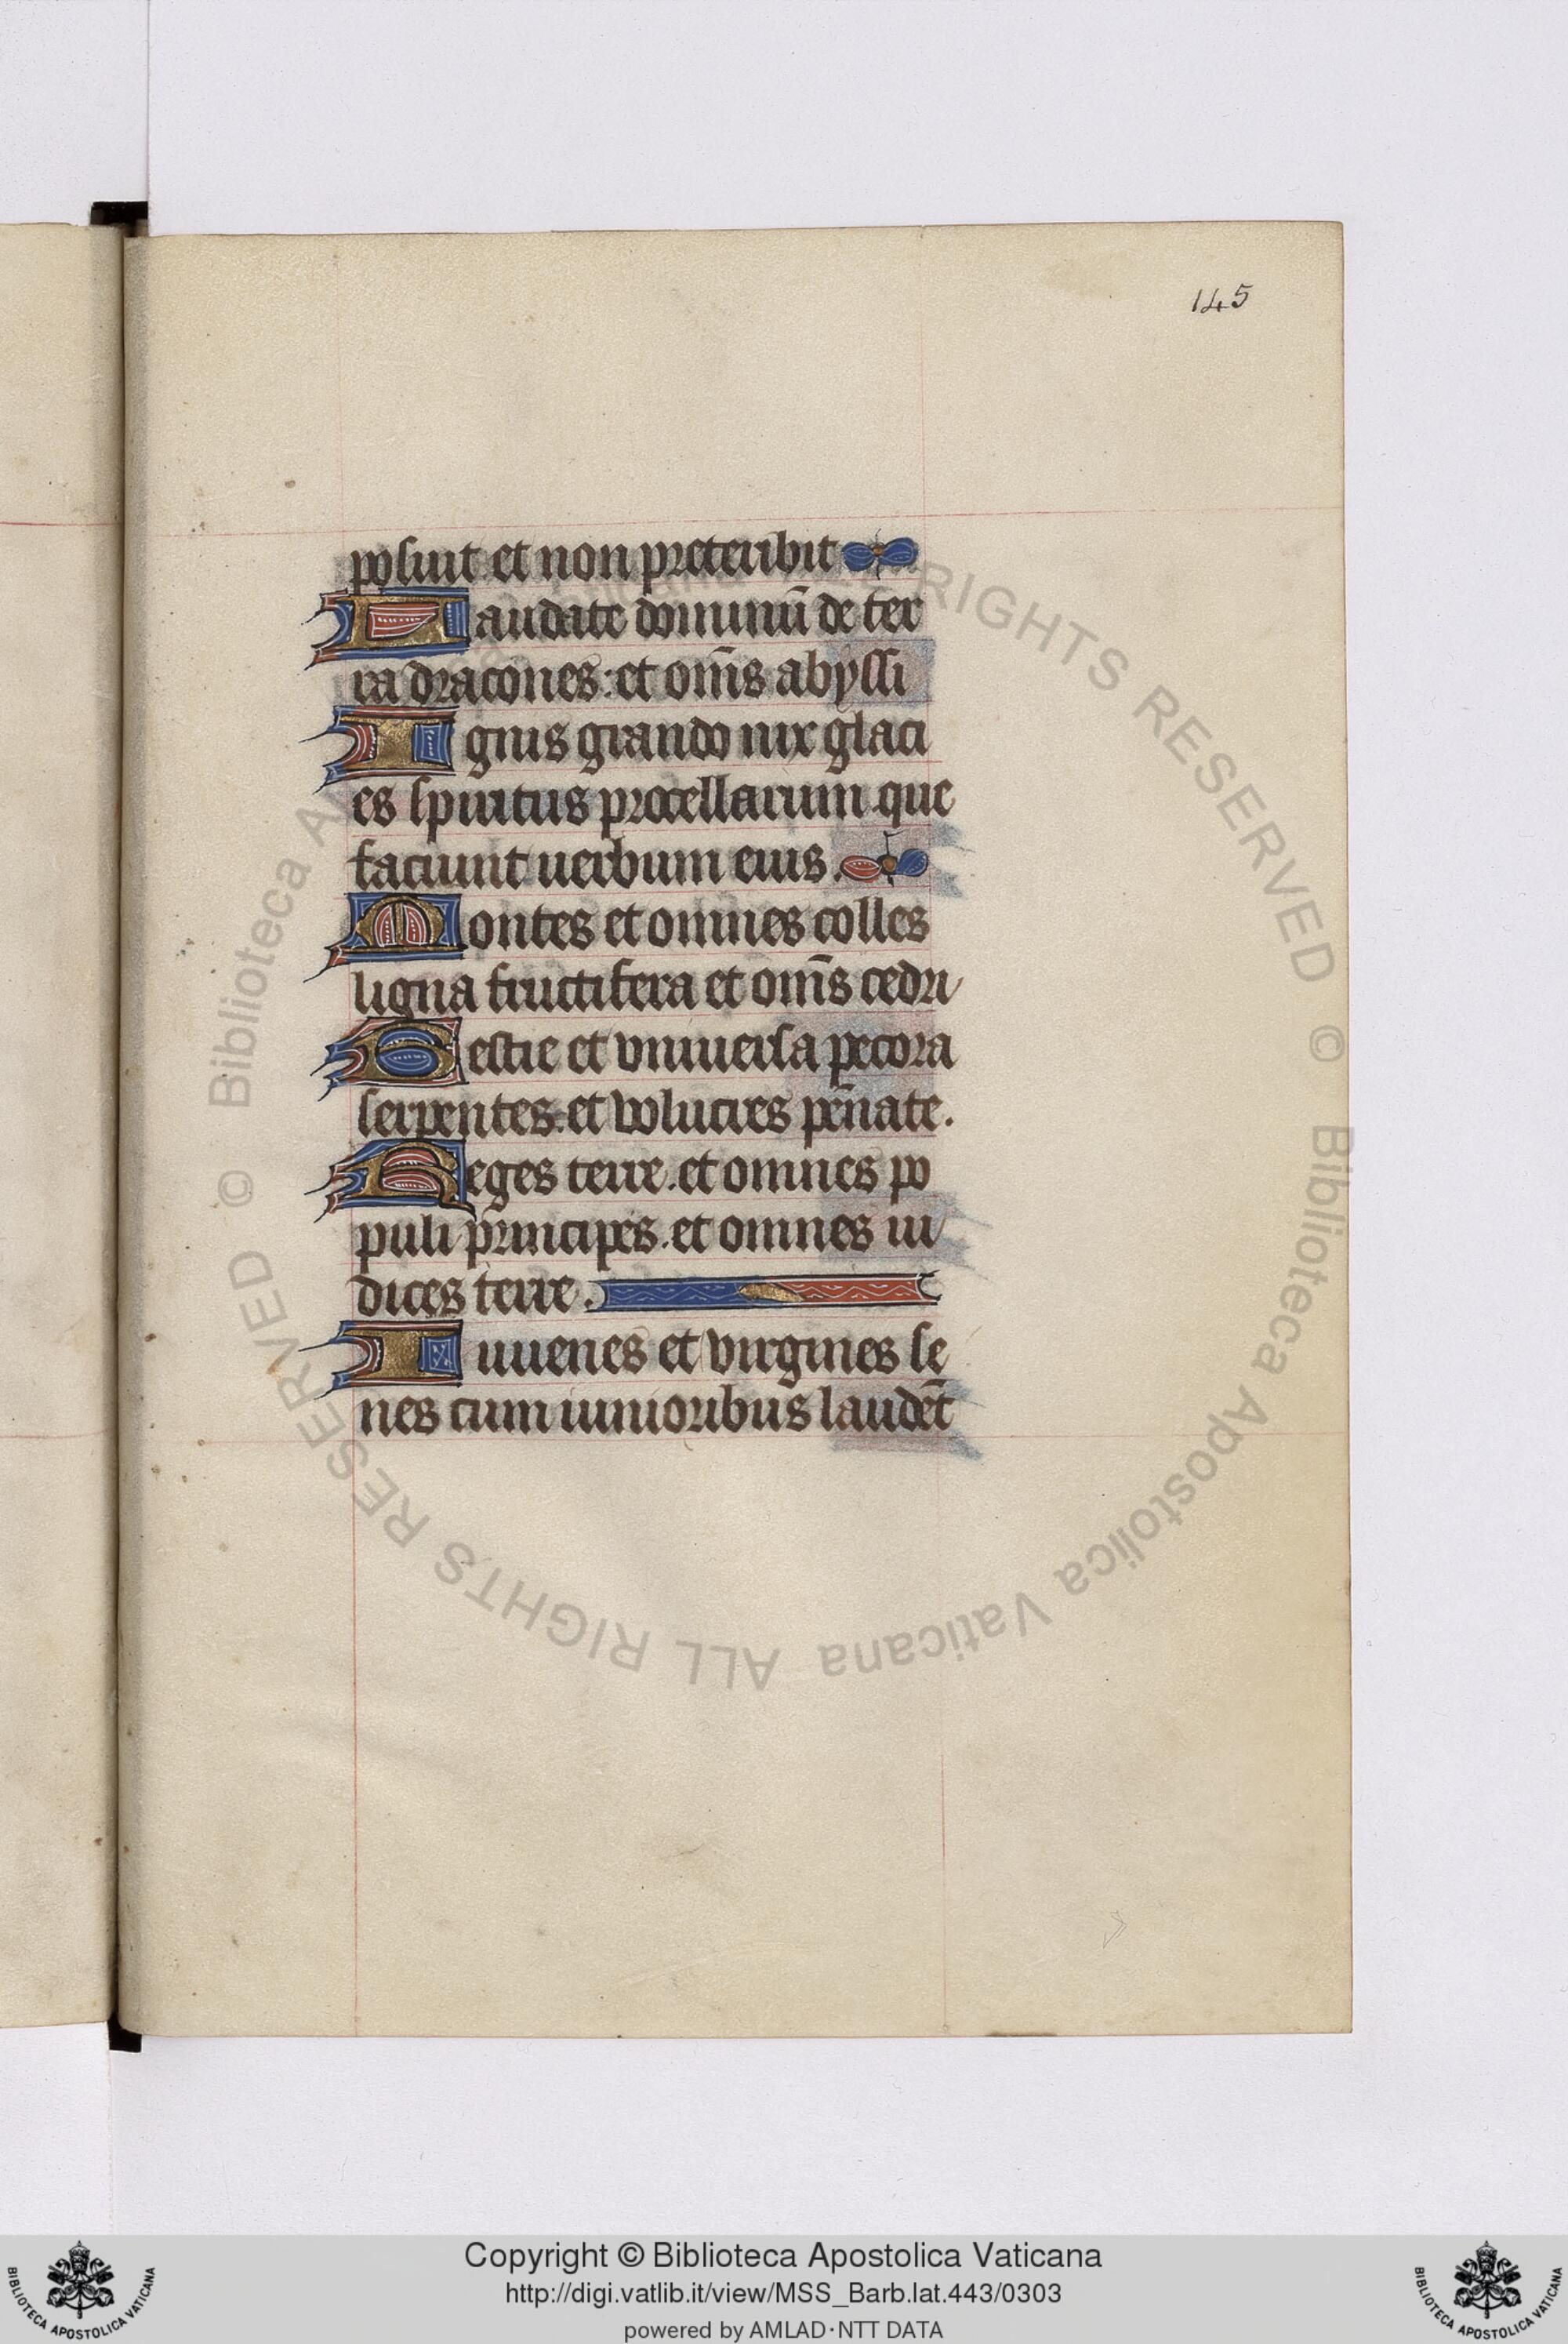 145
posuit et non preteribit
Laudate dominū de ter
ra dracones: et om̄s abyssi
Ignis grando nix glaci
es spiritus procellarum que
faciunt uerbum eius.
Montes et omnes colles
ligna fructifera et om̄s cedri
Bestie et vniuersa pecora
serpentes. et volucres pēnate.
Reges terre. et omnes po
puli principes. et omnes iu
dices terre.
Iuuenes et virgines se
nes cum iunioribus laudēt
© Biblioteca Apostolica Vaticana ALL RIGHTS RESERVED
© Biblioteca Apostolica Vaticana ALL RIGHTS RESERVED
Copyright © Biblioteca Apostolica Vaticana
http://digi.vatlib.it/view/MSS_Barb.lat.443/0303
powered by AMLAD·NTT DATA
BIBLIOTECA APOSTOLICA VATICANA
BIBLIOTECA APOSTOLICA VATICANA